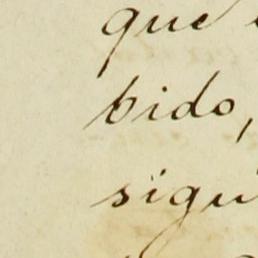 que
bido,
sigu